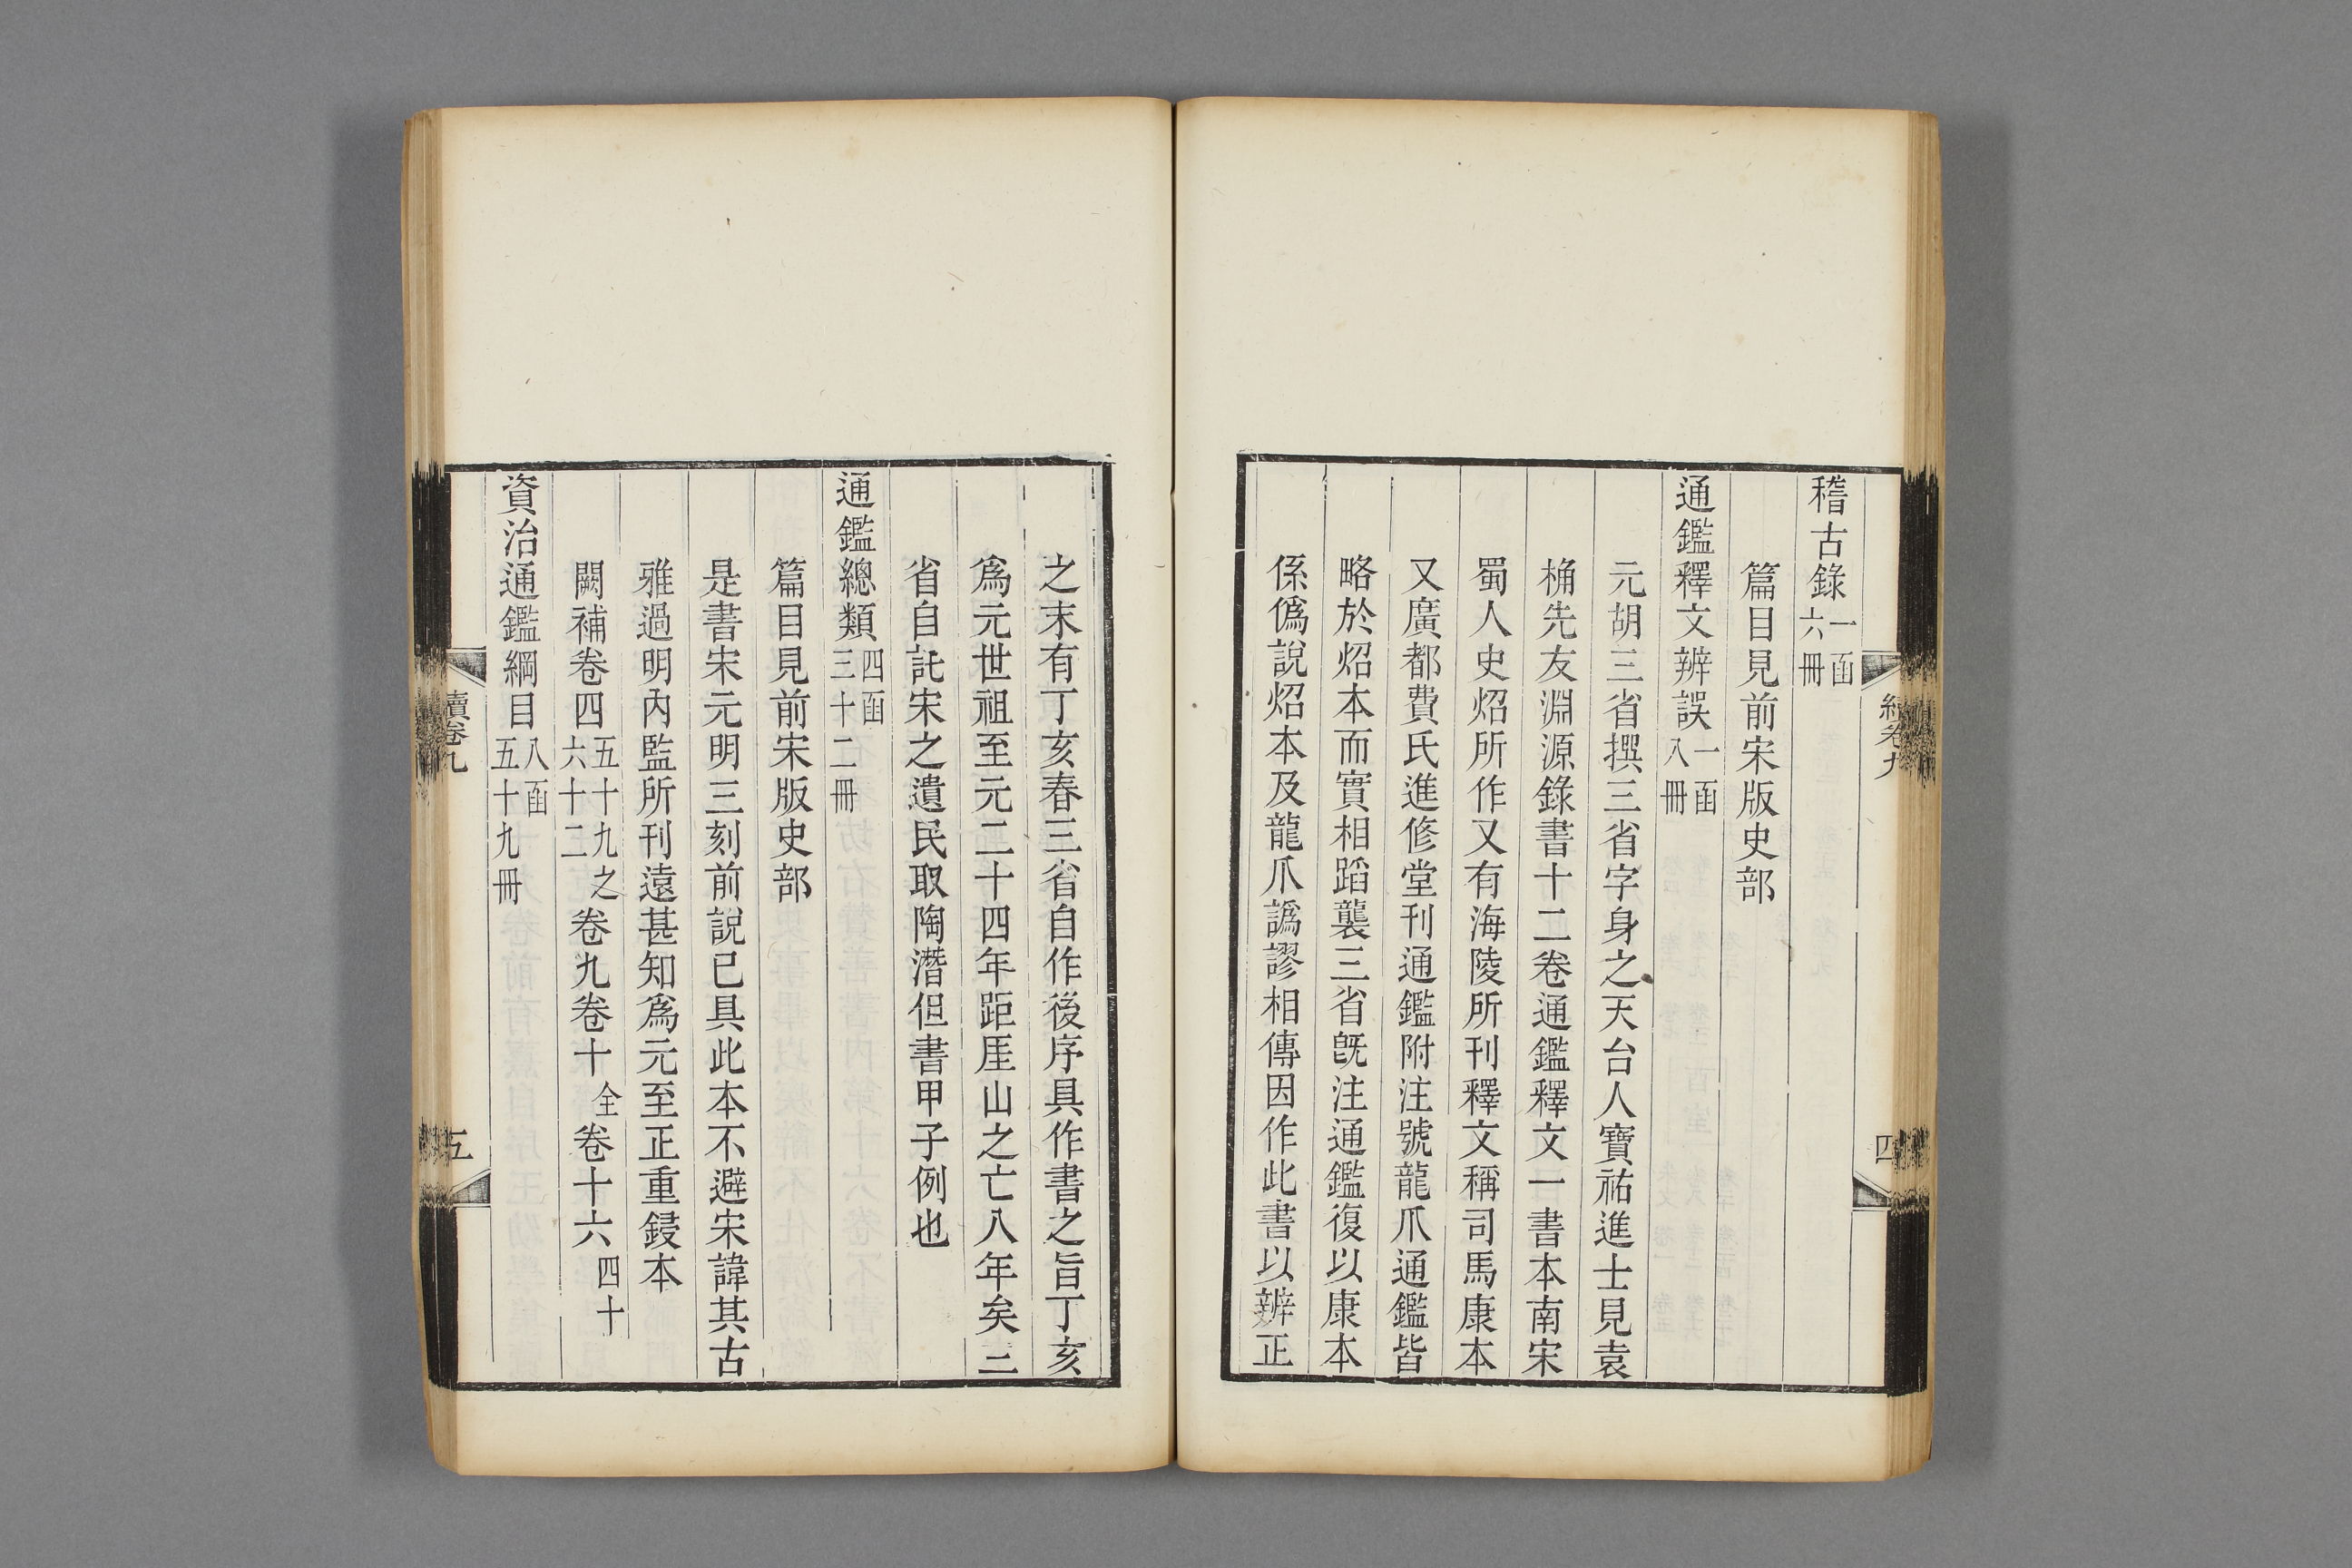 稽古錄一函六冊
篇目見前宋版史部
通鑑釋文辨誤一函八冊
元胡三省撰三省字身之天台人寶祐進士見袁
桷先友淵源錄書十二卷通鑑釋文一書本南宋
蜀人史炤所作又有海陵所刊釋文稱司馬康本
又廣都費氏進修堂刊通鑑附注號龍爪通鑑皆
略於炤本而實相蹈襲三省既注通鑑復以康本
係僞說炤本及龍爪譌謬相傳因作此書以辨正
續卷九
四
之末有丁亥春三省自作後序具作書之旨丁亥
爲元世祖至元二十四年距厓山之亡八年矣三
省自託宋之遺民取陶潛但書甲子例也
通鑑總類四函三十二冊
篇目見前宋版史部
是書宋元明三刻前說已具此本不避宋諱其古
雅過明內監所刊遠甚知爲元至正重鋟本
闕補卷四五十九之六十二卷九卷十全卷十六四十
資治通鑑綱目八函五十九冊
續卷九
五